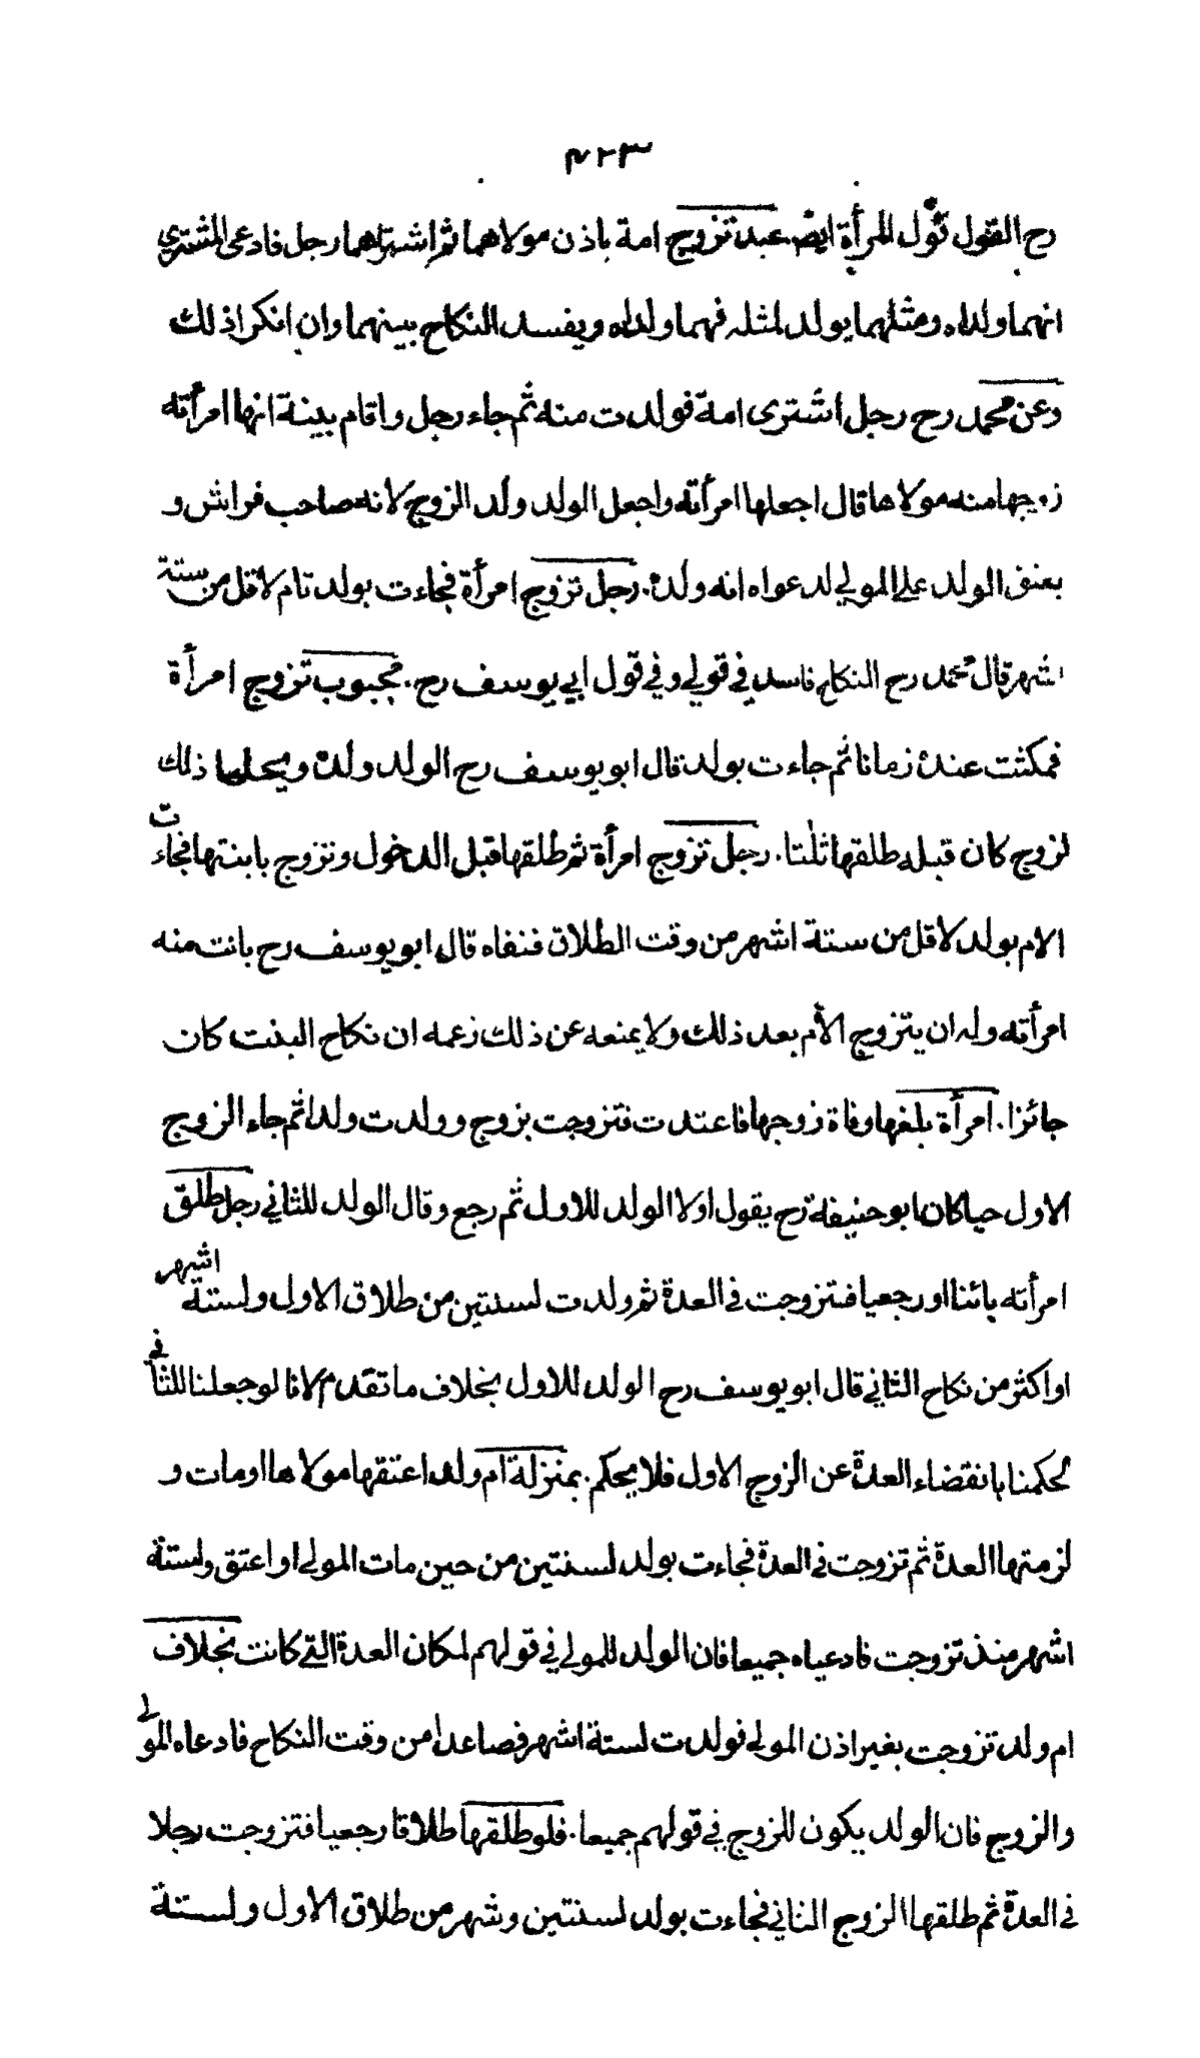 ٤٢٣
رح القول قول المرأة ايض عبد تزوج امة باذن مولاهما ثم اشتراهما رجل فادعى المشتري
انهما ولداه ومثلهما يولد لمثله فهما ولداه ويفسد النكاح بينهما وان انكرا ذلك
وعن محمد رح رجل اشترى امة فولدت منه ثم جاء رجل واقام بينة انها امرأته
زوجها منه مولاها قال اجعلها امرأته واجعل الولد ولد الزوج لانه صاحب فراش و
يعتق الولد على المولي لدعواه انه ولده. رجل تزوج امرأة فجاءت بولد تام لاقل من ستة
اشهر قال محمد رح النكاح فاسد في قولي وفي قول ابي يوسف رح. مجبوب تزوج امرأة
فمكثت عنده زمانا ثم جاءت بولد قال ابو يوسف رح الولد ولده ويحلها ذلك
لزوج كان قبله طلقها ثلثا. رجل تزوج امرأة ثم طلقها قبل الدخول وتزوج بابنتها فجاءت
الام بولد لاقل من ستة اشهر من وقت الطلاق فنفاه قال ابو يوسف رح بانت منه
امرأته وله ان يتزوج الأم بعد ذلك ولا يمنعه عن ذلك زعمه ان نكاح البنت كان
جائزا. امرأة بلغها وفاة زوجها فاعتدت فتزوجت بزوج وولدت ولدا ثم جاء الزوج
الاول حيا كان ابو حنيفة رح يقول اولا الولد للاول ثم رجع وقال الولد للثاني رجل طلق
امرأته بائنا او رجعيا فتزوجت في العدة ثم ولدت لسنتين من طلاق الاول ولستة اشهر
او اكثر من نكاح الثاني قال ابو يوسف رح الولد للاول بخلاف ما تقدم لانا لو جعلنا للثاني
لحكمنا بانقضاء العدة عن الزوج الاول فلا يحكم. بمنزلة ام ولد اعتقها مولاها او مات و
لزمتها العدة ثم تزوجت في العدة فجاءت بولد لسنتين من حين مات المولي او اعتق ولستة
اشهر منذ تزوجت فادعياه جميعا فان الولد للمولي في قولهم لمكان العدة التي كانت بخلاف
ام ولد تزوجت بغير اذن المولي فولدت لستة اشهر فصاعدا من وقت النكاح فادعاه المولي
والزوج فان الولد يكون للزوج في قولهم جميعا. فلو طلقها طلاقا رجعيا فتزوجت رجلا
في العدة ثم طلقها الزوج الثاني فجاءت بولد لسنتين وشهر من طلاق الاول ولستة